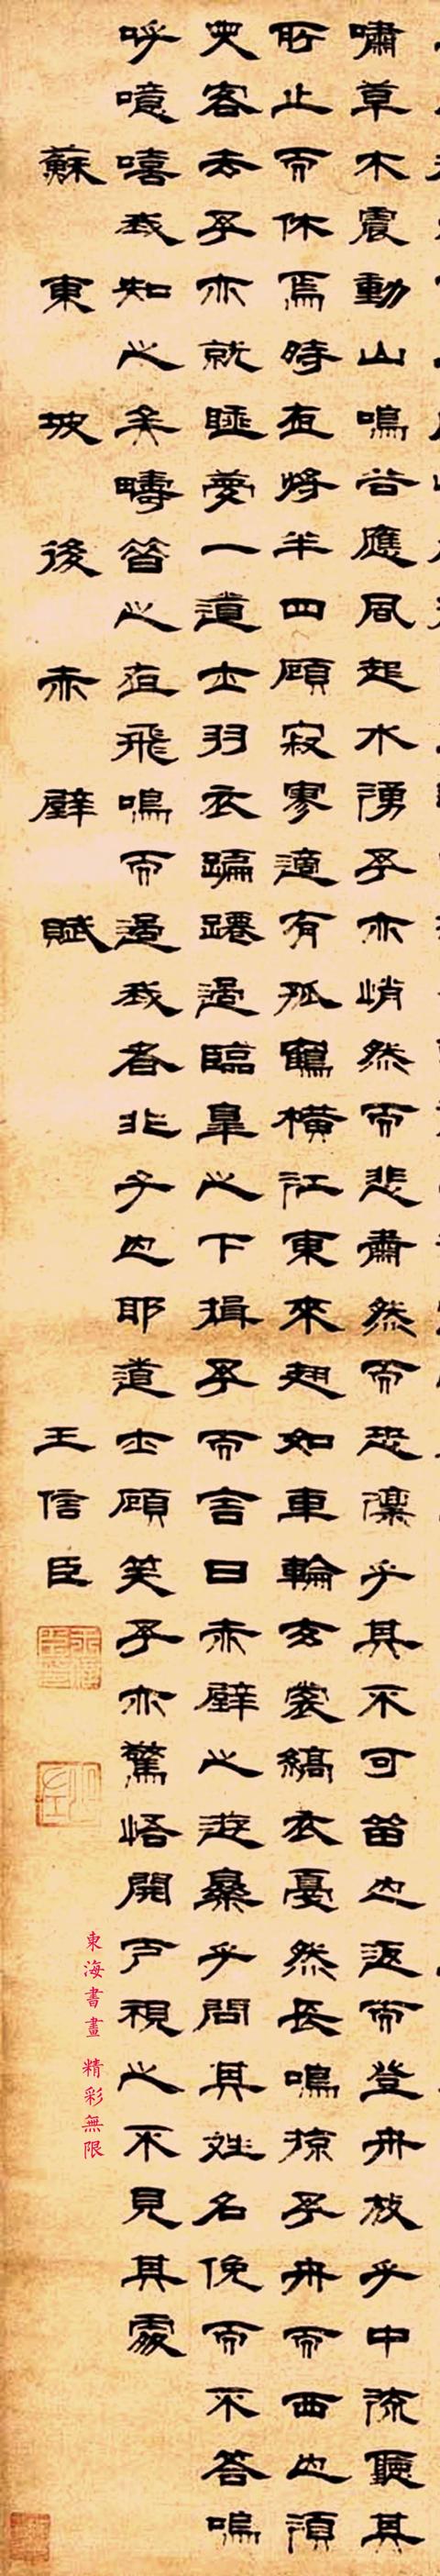 嘯草木震動山鳴谷應風起水湧予亦峭然而悲肅然而恐凜乎其不可留也返而登舟放乎中流聽其
所止而休焉時夜將半四顧寂寥適有孤鶴橫江東來翅如車輪玄裳縞衣戛然長鳴掠予舟而西也須
臾客去予亦就睡夢一道士羽衣蹁躚過臨皋之下揖予而言曰赤壁之遊樂乎問其姓名俛而不答嗚
呼噫嘻我知之矣疇昔之夜飛鳴而過我者非子也耶道士顧笑予亦驚悟開戶視之不見其處
蘇東坡後赤壁賦 王信臣
東海書畫 精彩無限